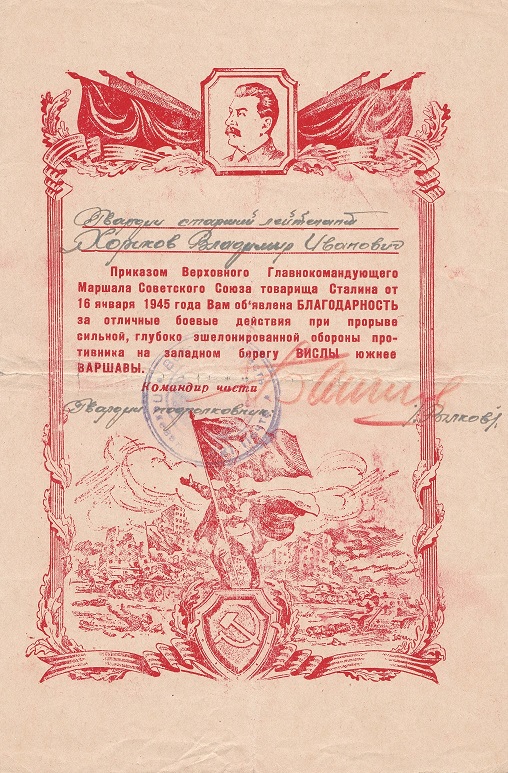 Гвардии старший лейтенант
Хориков Владимир Иванович
Приказом Верховного Главнокомандующего
Маршала Советского Союза товарища Сталина от
16 января 1945 года Вам об'явлена БЛАГОДАРНОСТЬ
за отличные боевые действия при прорыве
сильной, глубоко эшелонированной обороны про-
тивника на западном берегу ВИСЛЫ южнее
ВАРШАВЫ.
Командир части
Гвардии подполковник